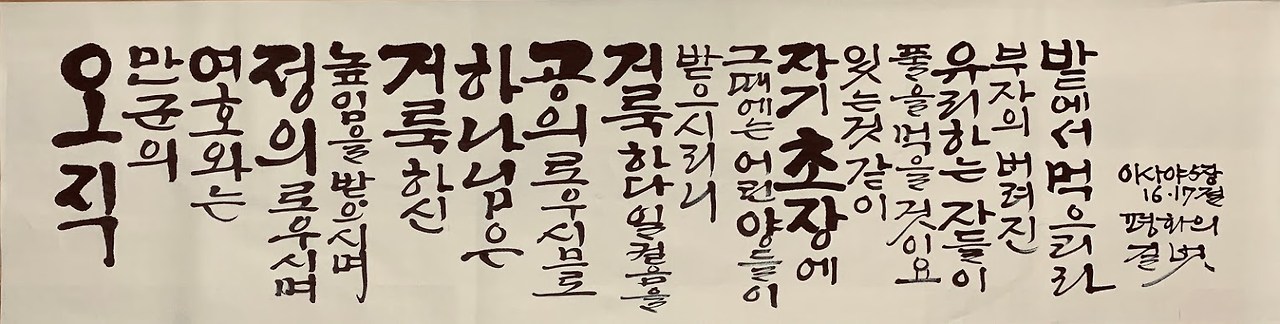 오직
만군의
여호와는
정의로우시며
높임을 받으시며
거룩하신
하나님은
공의로우시므로
거룩하다 일컬음을
받으시리니
그때에는 어린 양들이
자기 초장에
있는것 같이
풀을 먹을 것이요
유리하는 자들이
부자의 버려진
밭에서 먹으리라
이사야5장
16·17절
평화의
길벗